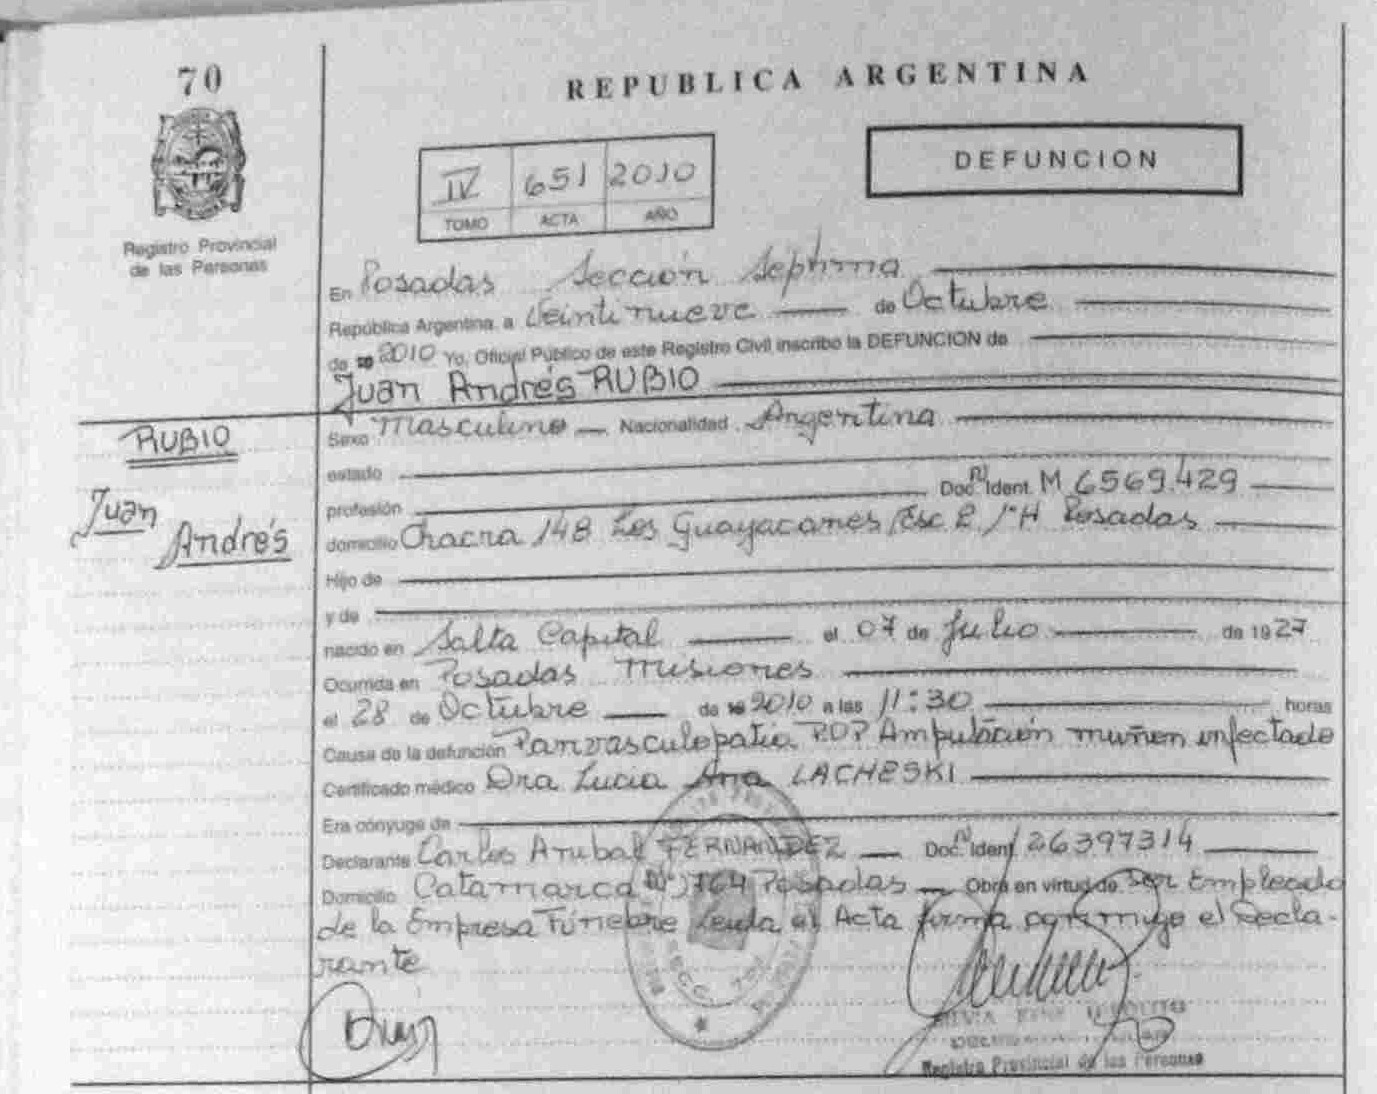 70
REPUBLICA ARGENTINA
DEFUNCION
IV 651 2010
TOMO ACTA AÑO
Registro Provincial
de las Personas
En Posadas Sección Septima
República Argentina a Veintinueve de Octubre
de 2010 Yo, Oficial Público de este Registro Civil inscribo la DEFUNCION de
Juan Andrés RUBIO
RUBIO
Juan
Andrés
Sexo Masculino Nacionalidad Argentina
estado
profesión Doc. Ident. M 6569.429
domicilio Chacra 148 Los Guayacanes Esc 2 1º H Posadas
Hijo de
y de
nacido en Salta Capital el 07 de Julio de 1927
Ocurrida en Posadas Misiones
el 28 de Octubre de 2010 a las 11:30 horas
Causa de la defunción Panvasculopatia POP Amputación muñon infectado
Certificado médico Dra Lucia Ana LACHESKI
Era cónyuge de
Declarante Carlos Anibal FERNANDEZ Doc. Ident. 26397314
Domicilio Catamarca Nº 1764 Posadas Obra en virtud de Ser Empleado
de la Empresa Fúnebre Leida el Acta firma conmigo el Decla-
rante
Registro Provincial de las Personas